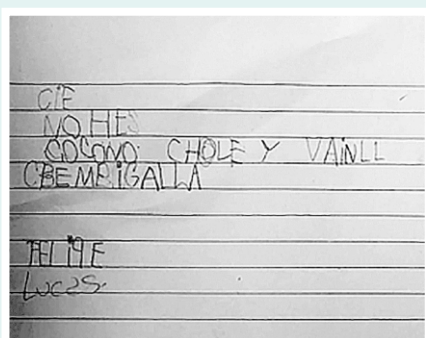 CiE
NO HES
COCONO CHOLE Y VAiNLL
CBEMEiGALLA
FELiPE
Lucas.